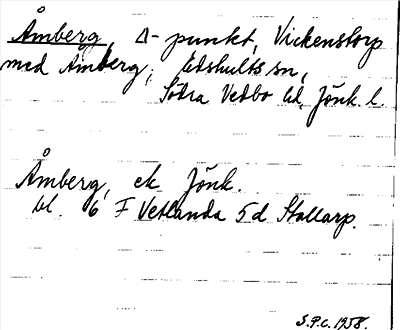 Åmberg, Δ-punkt, Vickenstorp
med Åmberg; Edshults sn,
Södra Vedbo hd, Jönk. l.
Åmberg, ek Jönk.
bl. 6 F Vetlanda 5d Stallarp.
S.P.C. 1958.